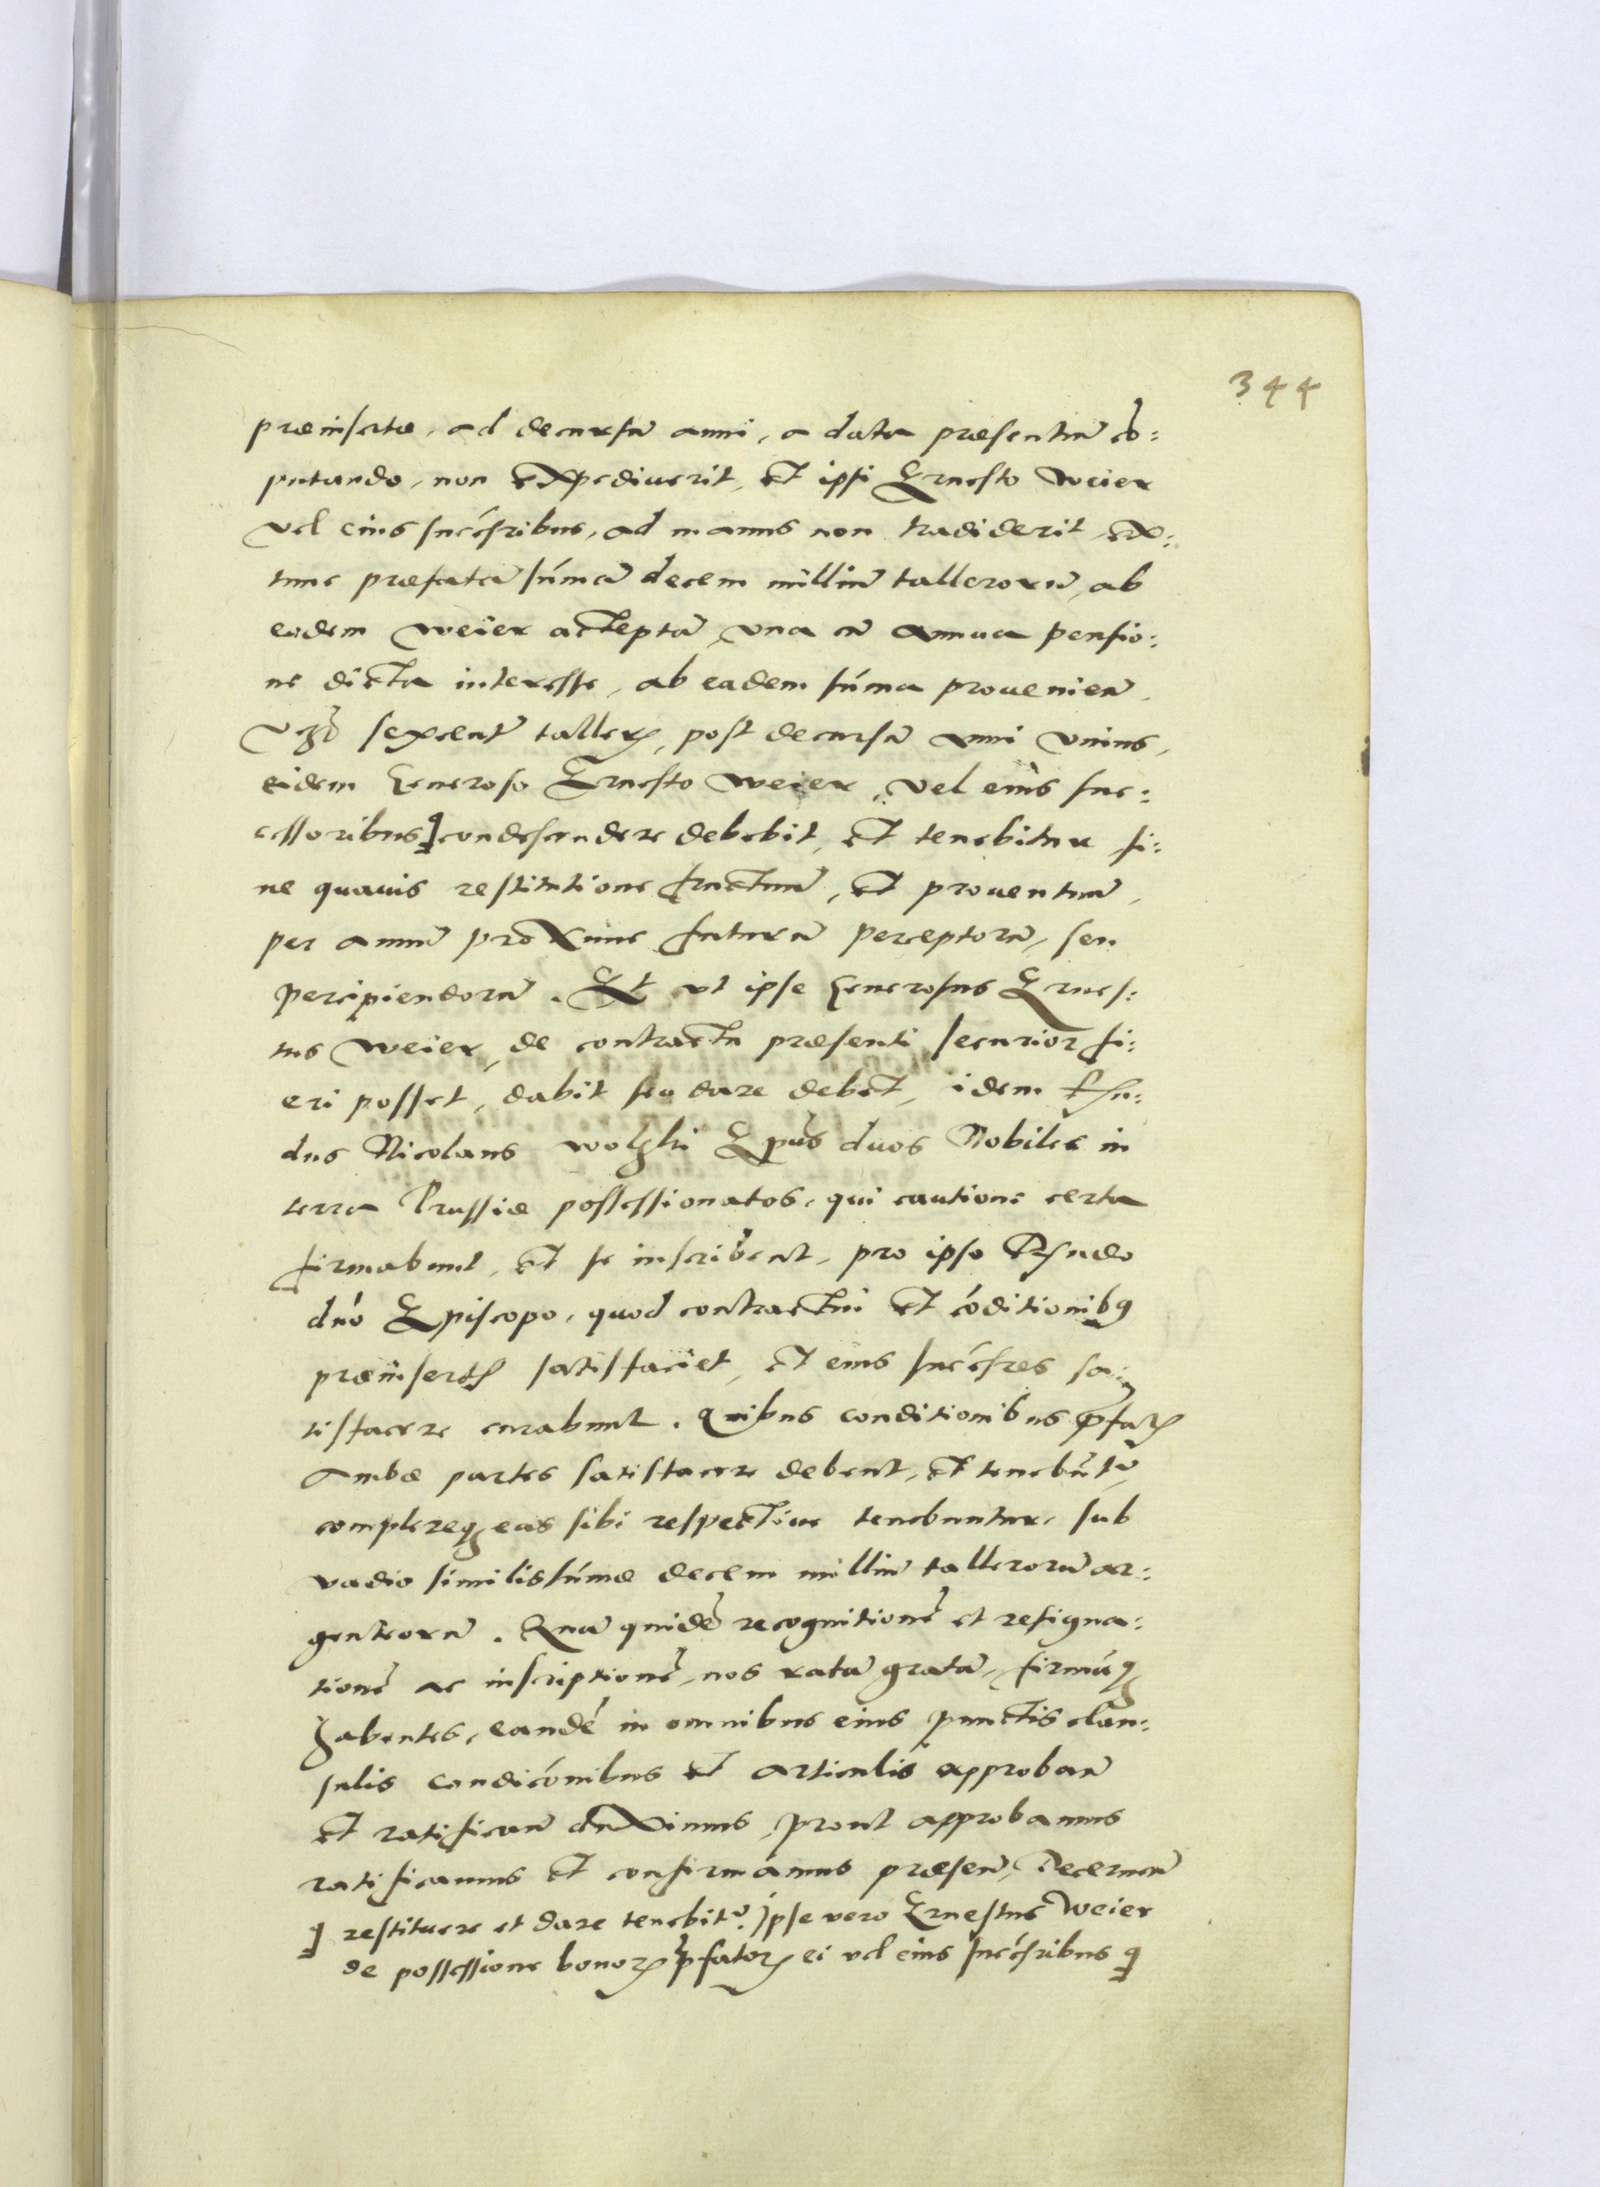 344
præinsertæ, ad decursũ anni, a data præsentiũ cõ:
putando, non expediuerit, et ipsi Ernesto Weier
vel eius succ̃sribus, ad manus non tradiderit, ex:
tunc præfatã sum̃ã decem milliũ tallerorũ, ab
eodem Weier acceptã, vna cũ annua pensio:
ne dicta interesse, ab eadem sum̃a prouenien̄,
vzt̃ sexcent̃ tallerꝝ, post decursũ anni vnius,
eidem Generoso Ernesto Weier, vel eius suc:
cessoribus condescendere debebit, et tenebitur si:
ne quauis restitutione fructuũ, et prouentuũ,
per annũ proxime futurũ perceptorũ, seu
percipiendorũ. Et vt ipse Generosus Ernes:
tus Weier, de contractu præsenti securior fi:
eri posset, dabit seu dare debet, idem Rsñ:
dus Nicolaus Wolski Epũs duos Nobiles in
terra Prussiæ possessionatos, qui cautione certa
firmabunt, et se inscribent, pro ipso Rsñdo
dnõ Episcopo, quod contractui et cõditionibꝯ
præinsertꝭ satisfaciet, et eius succ̃sres sa:
tisfacere curabunt. Quibus conditionibus p̃fatꝭ
ambæ partes satisfacere debent, et tenebũt᷑,
complereqꝫ eas sibi respectiue tenebuntur, sub
vadio similis sum̃æ decem milliũ tallerorũ ar:
genteorũ. Quã quidẽ recognitionẽ et resigna:
tionẽ ac inscriptionẽ, nos ratã gratã, firmãqꝫ
habentes, eandẽ in omnibus eius punctis clau:
sulis condicõnibus et articulis approban̄
et ratifican̄ duximus, prout approbamus
ratificamus et confirmamus præsen̄, Decernen̄
restituere et dare tenebit᷑. Ipse vero Ernestus Weier
de possessione bonorꝝ p̃fatorꝝ ei vel eius succ̃sribus